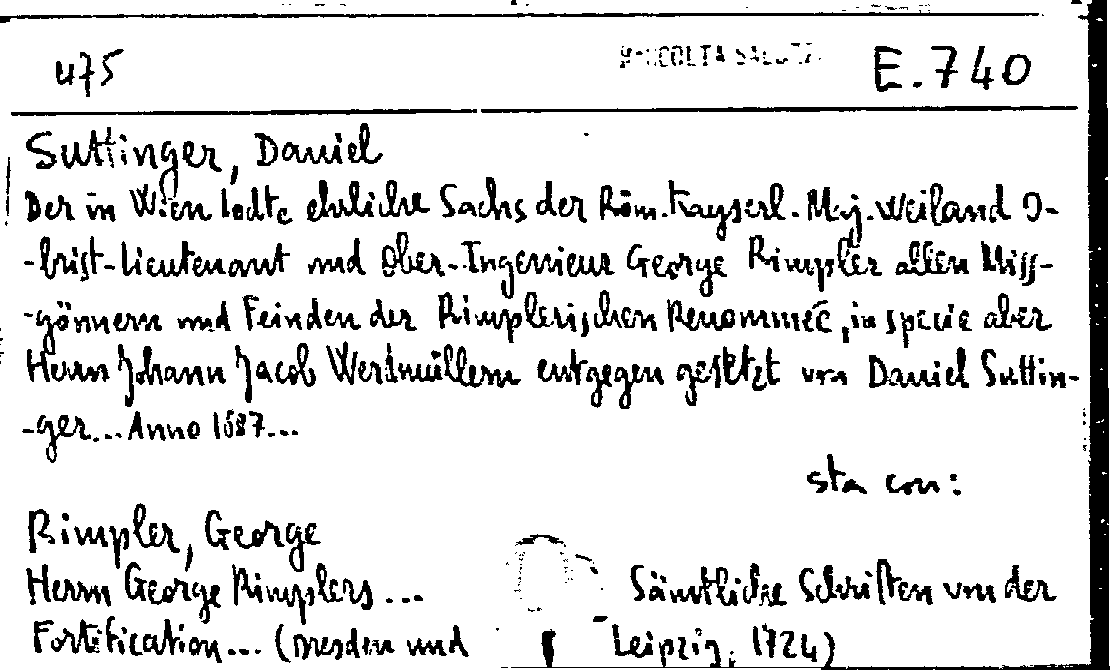 475 RACCOLTA SALUZZO E.740
Suttinger, Daniel
Der in Wien todte ehrliche Sachs der Röm. Kayserl. Maj. Weiland O-
-brist-Lieutenant und Ober-Ingenieur George Rimpler allen Miss-
-gönnern und Feinden der Rimplerischen Renommeé, in specie aber
Herrn Johann Jacob Werdmüllern entgegen gesetzt von Daniel Suttin-
-ger... Anno 1687...
sta con:
Rimpler, George
Herrn George Rimplers ... Sämtliche Schriften von der
Fortification... (Dresden und Leipzig, 1724)